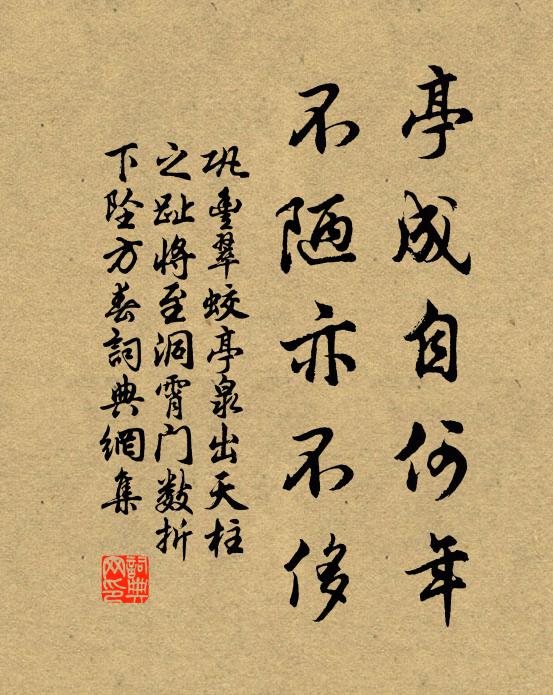 亭成自何年
不陋亦不侈
巩豊翠蛟亭泉出天柱
之趾將至洞霄门數折
下坠方春詞典網集
詞典
网印